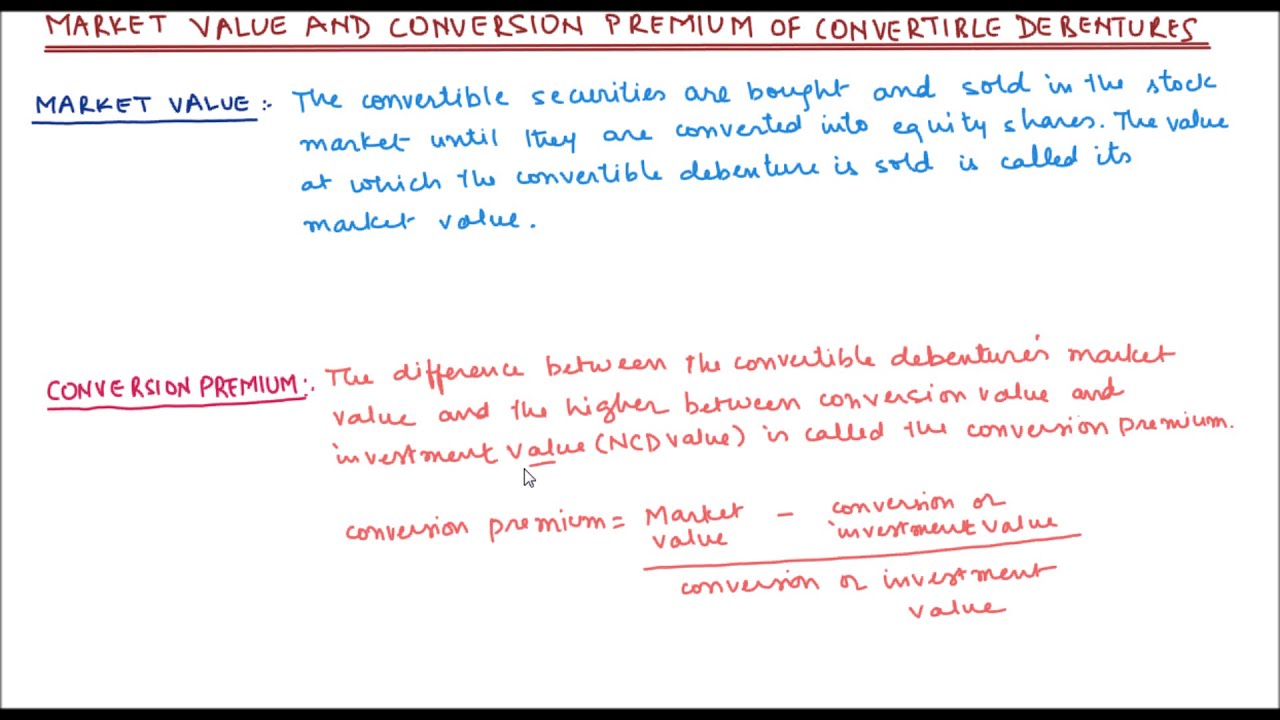 MARKET VALUE AND CONVERSION PREMIUM OF CONVERTIBLE DEBENTURES
MARKET VALUE :- The convertible securities are bought and sold in the stock
market until they are converted into equity shares. The value
at which the convertible debenture is sold is called its
market value.
CONVERSION PREMIUM :- The difference between the convertible debenture's market
value and the higher between conversion value and
investment value (NCD value) is called the conversion premium.
conversion premium = Market value - conversion or investment value
conversion or investment
value